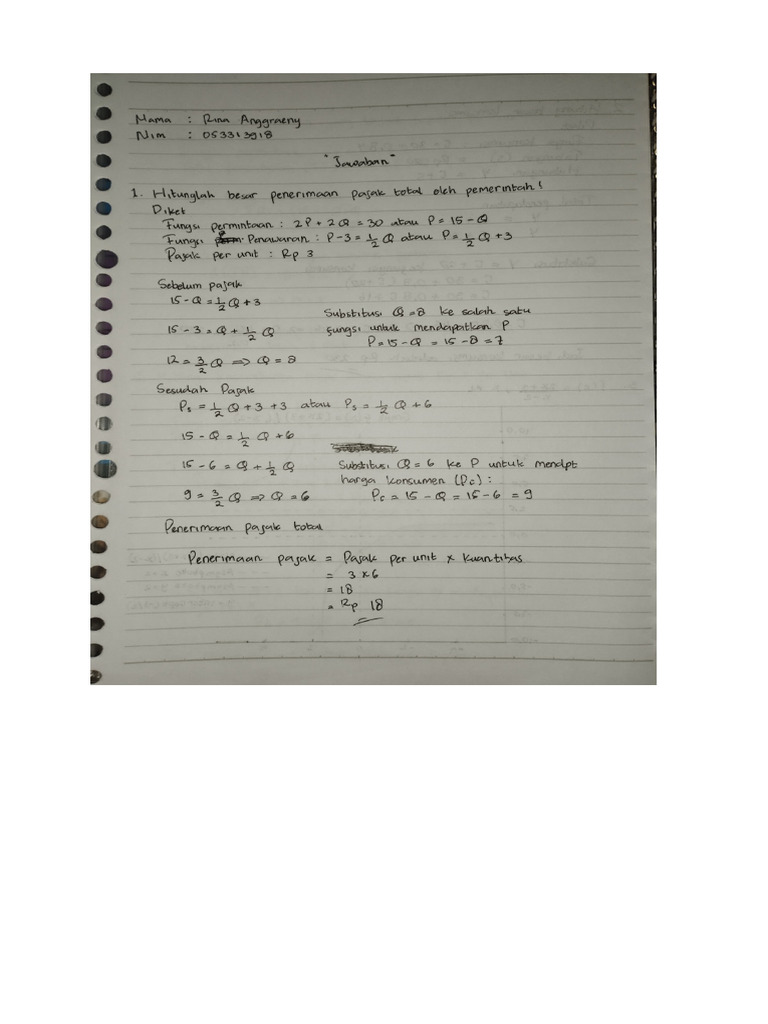 Nama : Rina Anggraeny
Nim : 053313918
"Jawaban"
1. Hitunglah besar penerimaan pajak total oleh pemerintah!
Diket
Fungsi permintaan : 2P + 2Q = 30 atau P = 15 - Q
Fungsi Penawaran : P - 3 = 1/2 Q atau P = 1/2 Q + 3
Pajak per unit : Rp 3
Sebelum pajak
15 - Q = 1/2 Q + 3
15 - 3 = Q + 1/2 Q
12 = 3/2 Q => Q = 8
Substitusi Q = 8 ke salah satu
fungsi untuk mendapatkan P
P = 15 - Q = 15 - 8 = 7
Sesudah Pajak
Ps = 1/2 Q + 3 + 3 atau Ps = 1/2 Q + 6
15 - Q = 1/2 Q + 6
15 - 6 = Q + 1/2 Q
9 = 3/2 Q => Q = 6
Substitusi Q = 6 ke P untuk mendpt
harga konsumen (Pc) :
Pc = 15 - Q = 15 - 6 = 9
Penerimaan pajak total
Penerimaan pajak = Pajak per unit x kuantitas
= 3 x 6
= 18
= Rp 18